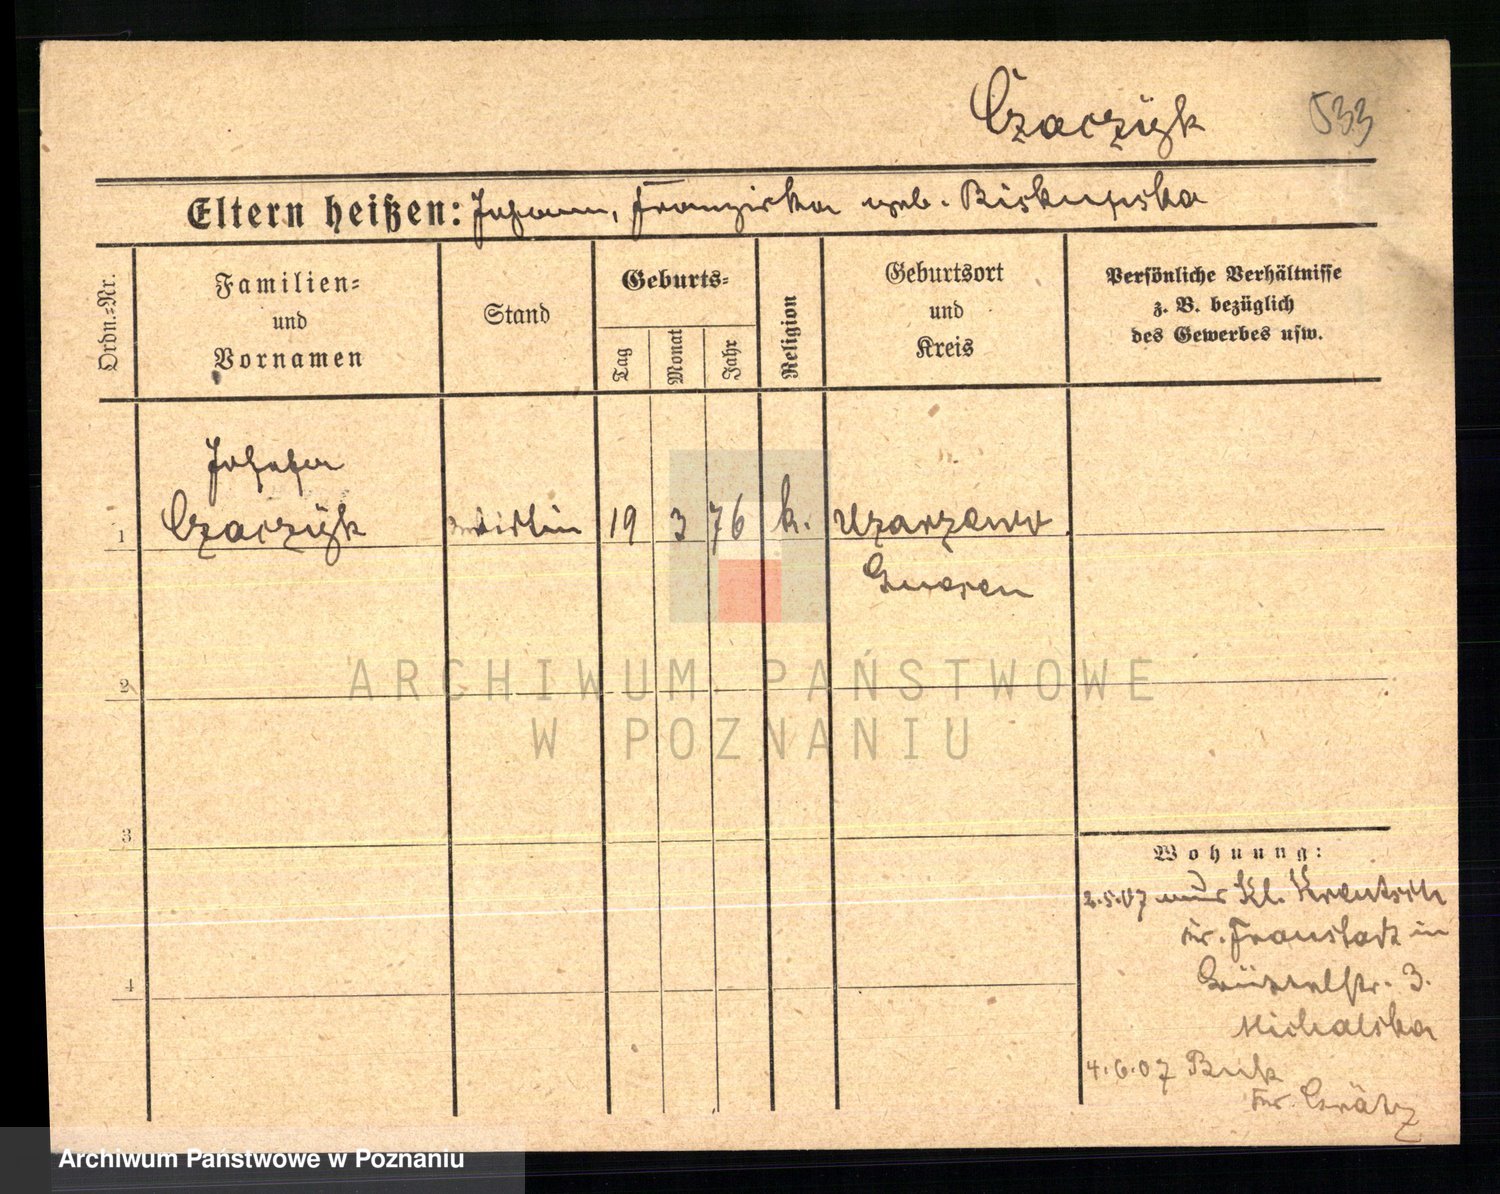 Czaczyk 533
Eltern heißen: Johann, Franziska geb. Biskupska
Ordn.=Nr.
Familien=
und
Vornamen
Stand
Geburts=
Tag
Monat
Jahr
Religion
Geburtsort
und
Kreis
Persönliche Verhältnisse
z. B. bezüglich
des Gewerbes usw.
Josefa
1 Czaczyk 19 3 76 k. Uzarzewo
Gnesen
2
3
4
ARCHIWUM PAŃSTWOWE
W POZNANIU
Wohnung:
2.5.07 Kl. Kreutsch
Kr. Fraustadt in
3.
Michalska
4.6.07 Buk
Kr. Grätz
Archiwum Państwowe w Poznaniu